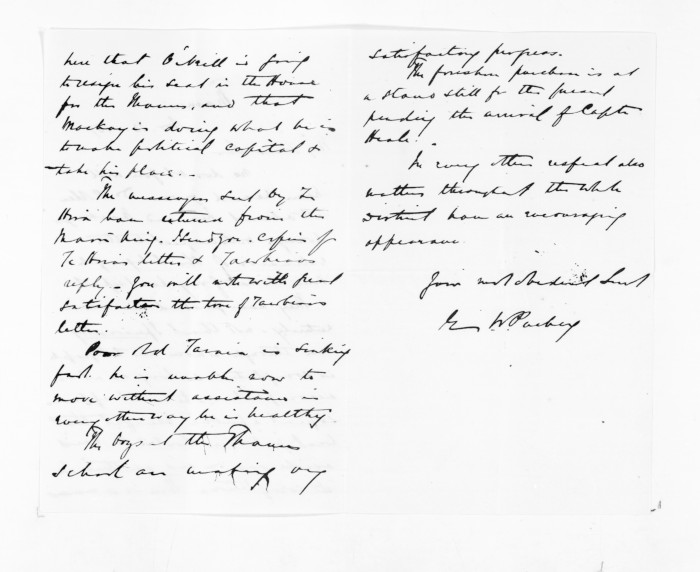 here that O'Neill is going
to resign his seat in the House
for the Thames, and that
Mackay is doing what he is
to make political capital &
take his place. -
The messengers sent by Te
Hira have returned from the
Maori King. I send you copies of
Te Hira's letter & Tawhiao's
reply - You will note with great
satisfaction the tone of Tawhiao's
letter.
Poor Old Taraia is sinking
fast. he is unable now to
move without assistance in
every other way he is healthy
The boys at the Thames
School are making very
satisfactory progress.
The foreshore purchase is at
a stand still for the present
pending the arrival of Captn
Heale.
In every other respect also
matters throughout the whole
District have an encouraging
appearance.
Your most obedient Servt
W Puckey